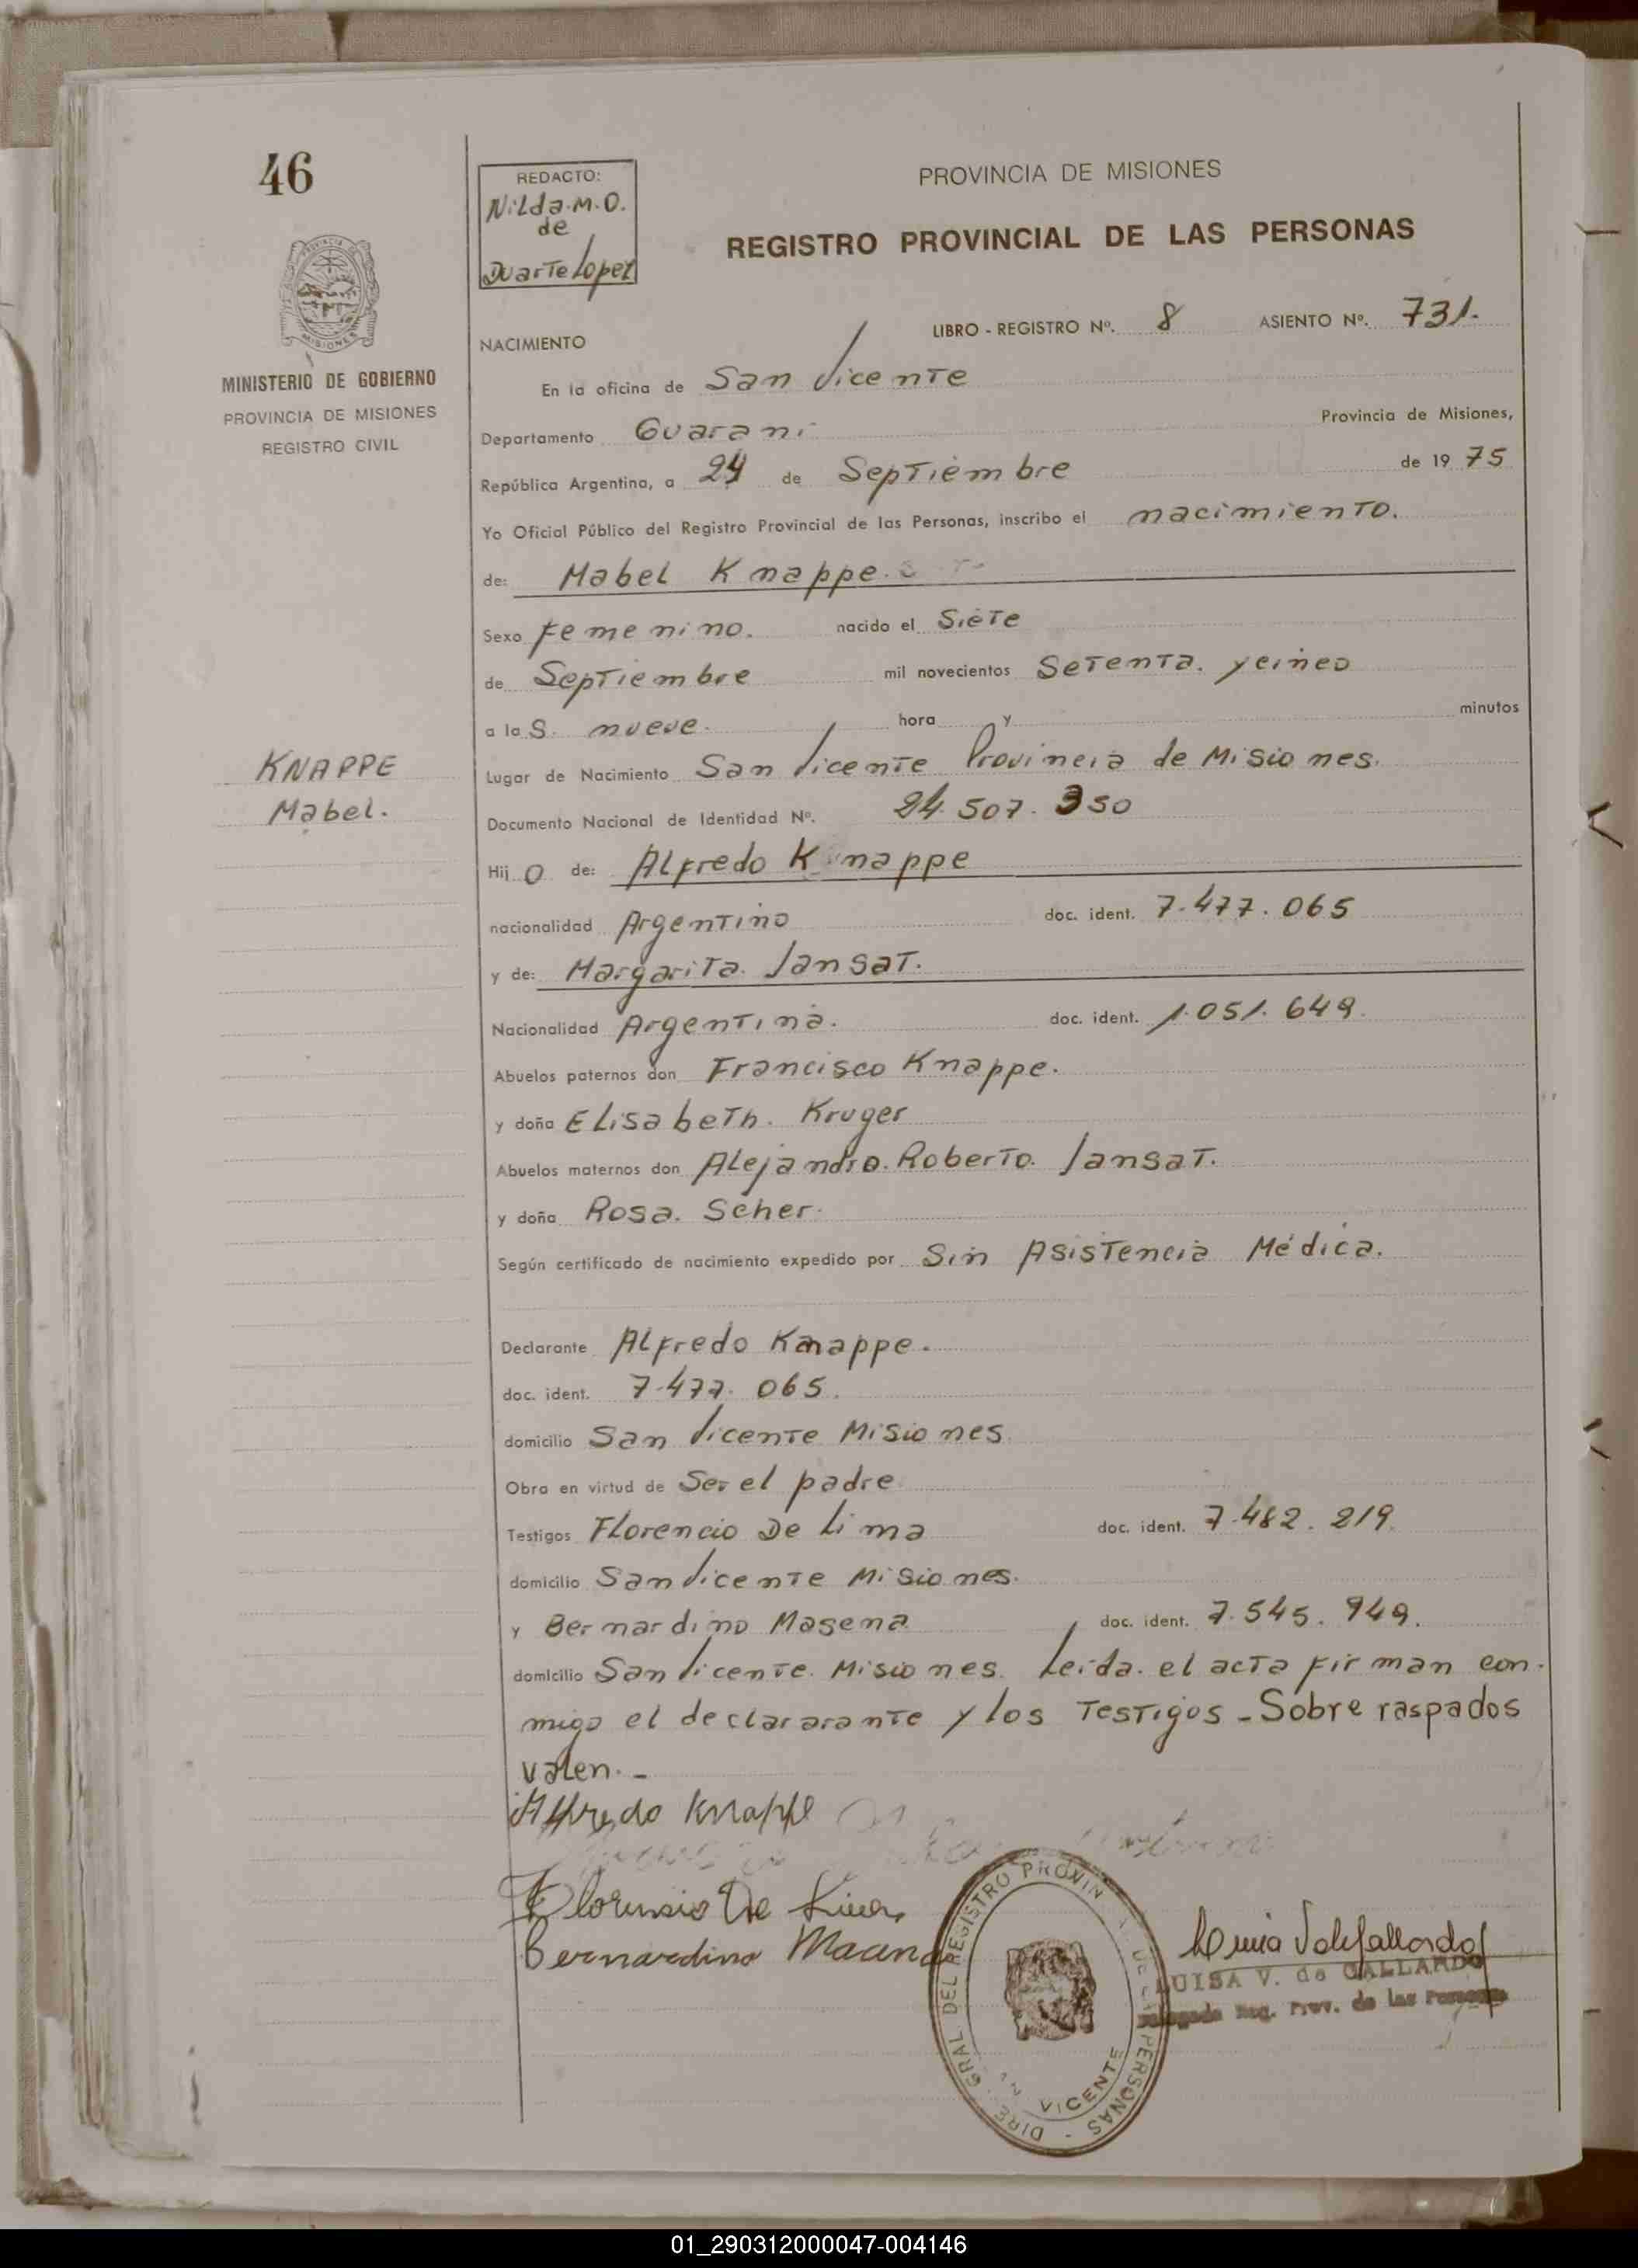 46
REDACTO:
Nilda.M.O.
de
Duarte Lopez
PROVINCIA DE MISIONES
REGISTRO PROVINCIAL DE LAS PERSONAS
MINISTERIO DE GOBIERNO
PROVINCIA DE MISIONES
REGISTRO CIVIL
LIBRO - REGISTRO Nº. 8 ASIENTO Nº. 731.
NACIMIENTO
En la oficina de San Vicente
Departamento Guarani Provincia de Misiones,
República Argentina, a 24 de Septiembre de 1975
Yo Oficial Público del Registro Provincial de las Personas, inscribo el nacimiento.
de: Mabel Knappe.
Sexo Femenino. nacido el Siete
de Septiembre mil novecientos Setenta. y cinco
a la S. nueve. hora y minutos
Lugar de Nacimiento San Vicente Provincia de Misiones.
KNAPPE
Mabel.
Documento Nacional de Identidad Nº. 24.507.350
Hij O de: Alfredo Knappe
nacionalidad Argentino doc. ident. 7.477.065
y de: Margarita. Jansat.
Nacionalidad Argentina. doc. ident. 1.051.649.
Abuelos paternos don Francisco Knappe.
y doña Elisabeth. Kruger
Abuelos maternos don Alejandro. Roberto. Jansat.
y doña Rosa. Scher.
Según certificado de nacimiento expedido por Sin Asistencia Médica.
Declarante Alfredo Knappe.
doc. ident. 7.477.065.
domicilio San Vicente Misiones.
Obra en virtud de Ser el padre
Testigos Florencio De Lima doc. ident. 7.482.219.
domicilio San Vicente Misiones.
y Bernardino Masena doc. ident. 7.545.949.
domicilio San Vicente. Misiones. Leida. el acta firman con-
migo el declararante y los Testigos - Sobre raspados
valen. -
Alfredo Knappe
Florensio De Lima
Bernardino
LUISA V. de GALLARDO
Delegada Reg. Prov. de las Personas
DIRE. GRAL DEL REGISTRO PROVIN PERSONAS
VICENTE
01_290312000047-004146